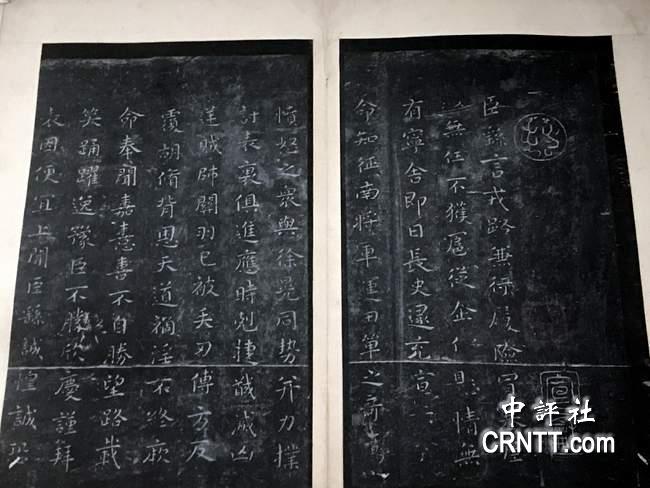 臣繇言戎路兼行履險冒
無任不獲扈從企情無
有寧舍即日長史逮充宣
命知征南將軍運田單之奇
憤怒之衆與徐晃同勢并力撲
討表裏俱進應時剋捷馘滅凶
逆賊帥關羽已被矢刃傅方反
覆胡脩背恩天道禍淫不終厥
命奉聞嘉憙喜不自勝望路載
笑踊躍逸豫臣不勝欣慶謹拜
表因便宜上聞臣繇誠惶誠恐
宣
中評社
CRNTT.com